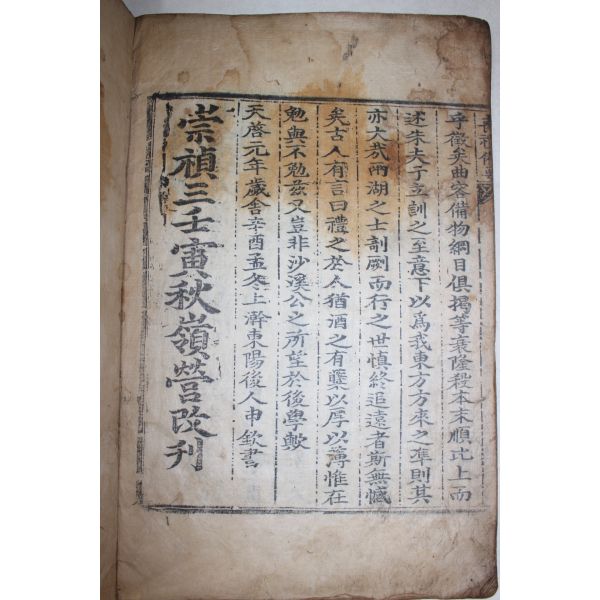 乎徵矣曲容備物綱目俱揭等衰隆殺本末順比上而
述朱夫子立訓之至意下以爲我東方方來之準則其
亦大哉兩湖之士剞劂而行之世愼終追遠者斯無憾
矣古人有言曰禮之於人猶酒之有糵以厚以薄惟在
勉與不勉玆又豈非沙溪公之所望於後學歟
天啓元年歲舍辛酉孟冬上澣東陽後人申欽書
崇禎三壬寅秋嶺營改刊